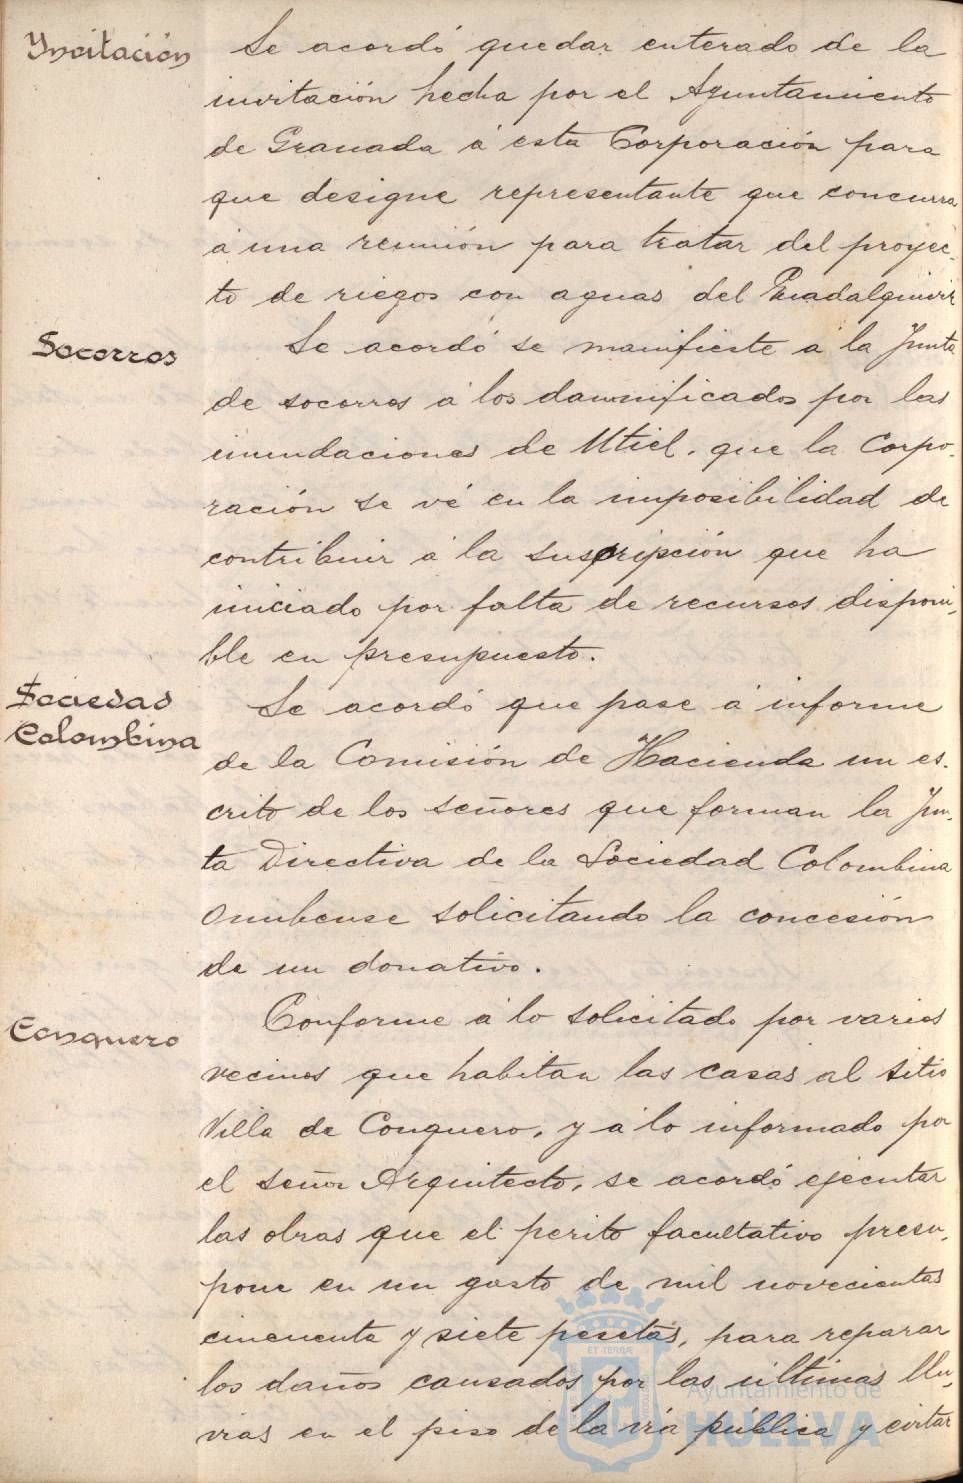 Ynvitación
Se acordó quedar enterado de la
invitación hecha por el Ayuntamiento
de Granada á esta Corporación para
que designe representante que concurra
á una reunión para tratar del proyec-
to de riegos con aguas del Guadalquivir
Socorros
Se acordó se manifieste á la Junta
de socorros á los damnificados por las
inundaciones de Utiel, que la Corpo-
ración se vé en la imposibilidad de
contribuir á la suscripción que ha
iniciado por falta de recursos disponi-
ble en presupuesto.
Sociedad
Colombina
Se acordó que pase á informe
de la Comisión de Hacienda un es-
crito de los señores que forman la Jun-
ta Directiva de la Sociedad Colombina
Onubense solicitando la concesión
de un donativo.
Conquero
Conforme á lo solicitado por varios
vecinos que habitan las casas al sitio
Villa de Conquero, y á lo informado por
el señor Arquitecto, se acordó ejecutar
las obras que el perito facultativo presu-
pone en un gasto de mil novecientas
cincuenta y siete pesetas, para reparar
los daños causados por las últimas llu-
vias en el piso de la vía pública y evitar
ET TERRÆ
Ayuntamiento de
HUELVA